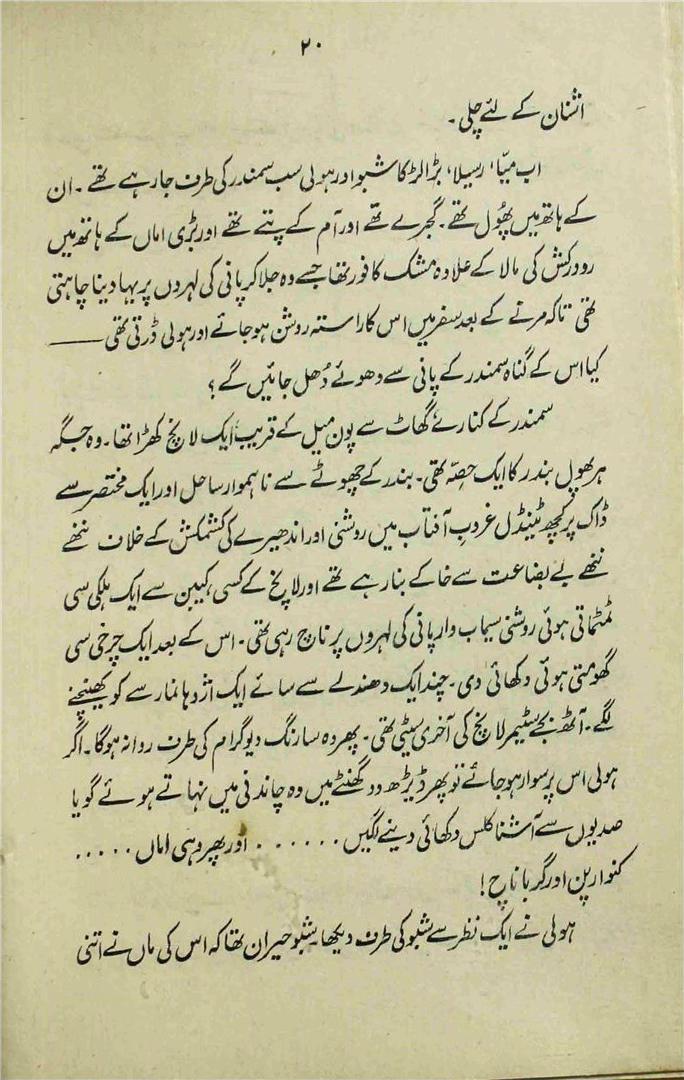 ۲۰
اشنان کے لئے چلی۔
اب میّا، رسیلا، بڑا لڑکا شبو اور ہولی سب سمندر کی طرف جا رہے تھے۔ ان
کے ہاتھ میں پھُول تھے۔ گجرے تھے اور آم کے پتے تھے اور بڑی اماں کے ہاتھ میں
رودرکش کی مالا کے علاوہ مشک کافور تھا جسے وہ جلا کر پانی کی لہروں پر بہا دینا چاہتی
تھی تاکہ مرنے کے بعد سفر میں اس کا راستہ روشن ہو جائے اور ہولی ڈرتی تھی ———
کیا اس کے گناہ سمندر کے پانی سے دھوئے دُھل جائیں گے؟
سمندر کے کنارے گھاٹ سے پون میل کے قریب ایک لانچ کھڑا تھا۔ وہ جگہ
ہرپھول بندر کا ایک حصّہ تھی۔ بندر کے چھوٹے سے ناہموار ساحل اور ایک مختصر سے
ڈاک پر کچھ ٹینڈل غروب آفتاب میں روشنی اور اندھیرے کی کشمکش کے خلاف ننھے
ننھے بے بضاعت سے خاکے بنا رہے تھے اور لانچ کے کسی کیبن سے ایک ہلکی سی
ٹمٹماتی ہوئی روشنی سیماب وار پانی کی لہروں پر ناچ رہی تھی۔ اس کے بعد ایک چرخی سی
گھومتی ہوئی دکھائی دی۔ چند ایک دھندلے سے سائے ایک اژدہا نما رسے کو کھینچنے
لگے۔ آٹھ بجے سٹیمر لانچ کی آخری سیٹی تھی۔ پھر وہ سارنگ دیوگرام کی طرف روانہ ہوگا۔ اگر
ہولی اس پر سوار ہو جائے تو پھر ڈیڑھ دو گھنٹے میں وہ چاندنی میں نہاتے ہوئے گویا
صدیوں سے آشنا کلس دکھائی دینے لگیں ...... اور پھر وہی اماں .....
کنوارپن اور گربا ناچ!
ہولی نے ایک نظر سے شبو کی طرف دیکھا۔ شبو حیران تھا کہ اس کی ماں نے اتنی